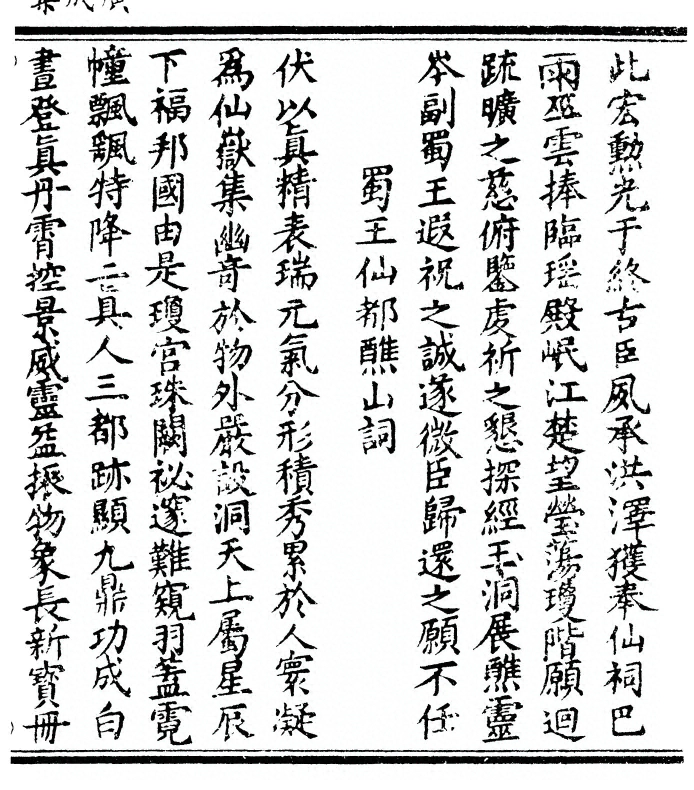 此宏勲光于終古臣夙承洪澤獲奉仙祠巴
雨巫雲捧臨瑶殿岷江楚望瑩蕩瓊階願迴
䟽曠之慈俯鑒虔祈之懇探經玉洞展醮靈
岑副蜀王遐祝之誠遂微臣歸還之願不任
蜀王仙都醮山詞
伏以眞精表瑞元氣分形積秀累於人寰凝
爲仙嶽集幽竒於物外嚴設洞天上屬星辰
下福邦國由是瓊宫珠闕祕邃難窺羽蓋霓
幢飄飄特降二眞人三都跡顯九鼎功成白
晝登眞丹霄控景威靈益振物象長新寶冊